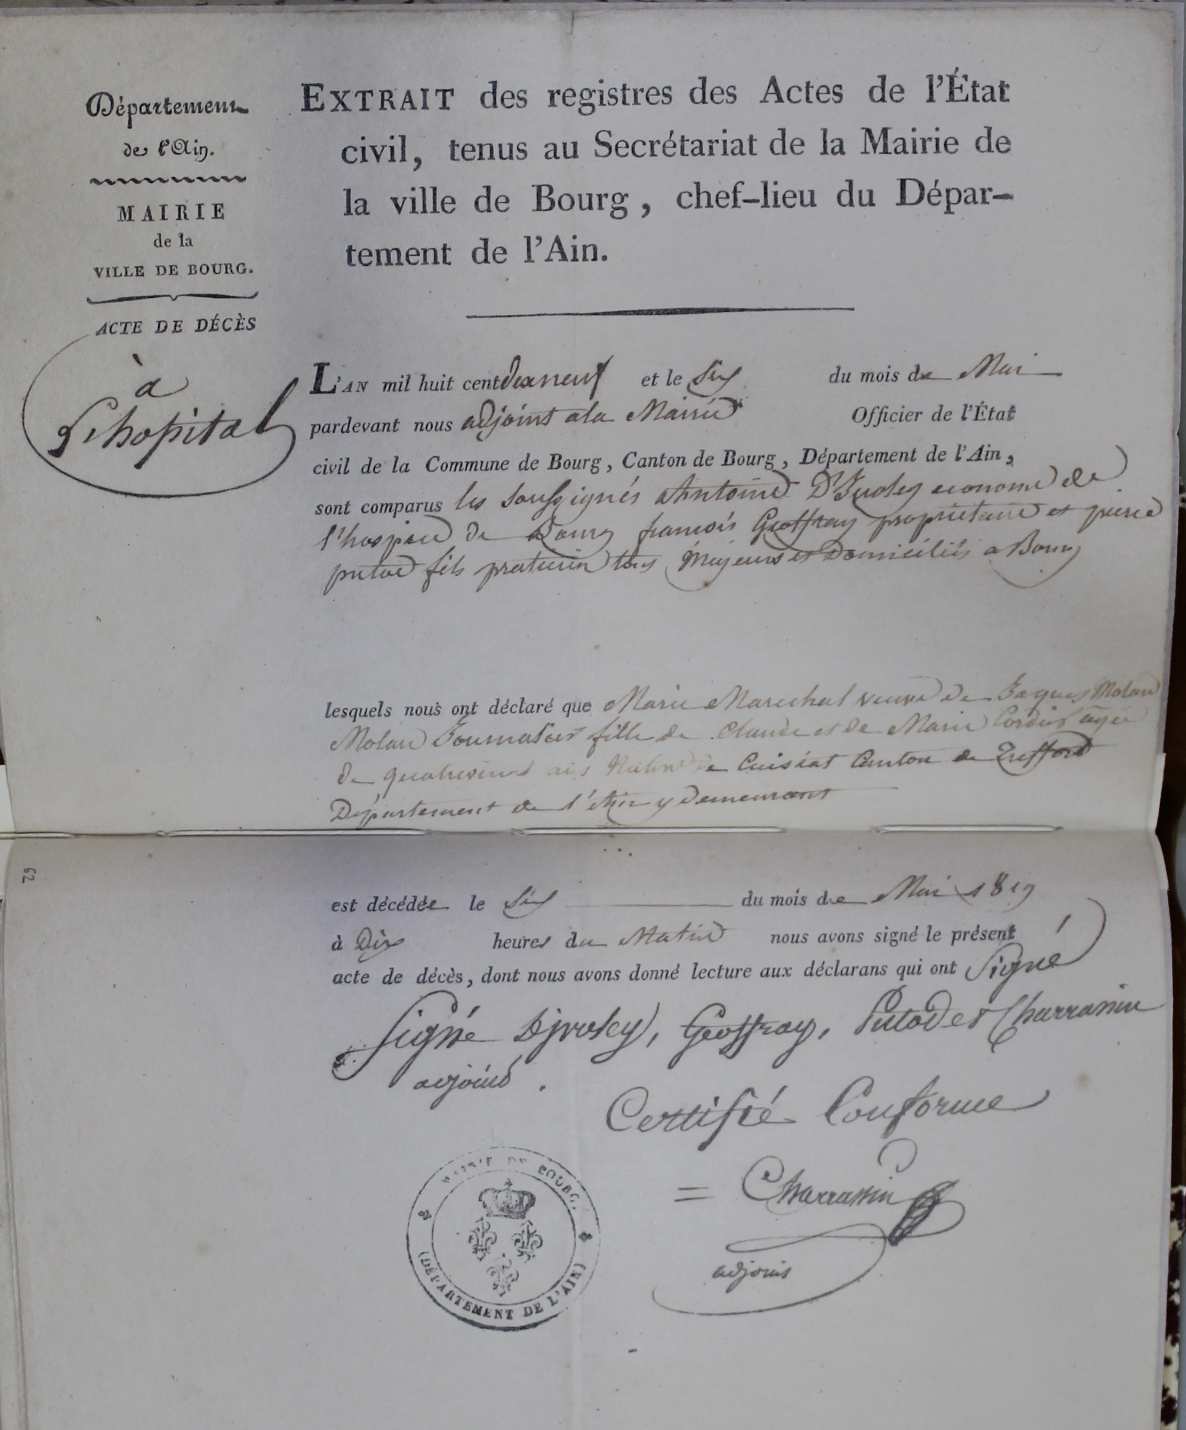 Département
de l'Ain.
MAIRIE
de la
VILLE DE BOURG.
ACTE DE DÉCÈS
à
L'hopital
EXTRAIT des registres des Actes de l'État
civil, tenus au Secrétariat de la Mairie de
la ville de Bourg, chef-lieu du Dépar-
tement de l'Ain.
L'AN mil huit cent dixneuf et le Six du mois de Mai
pardevant nous adjoint à la Mairie Officier de l'État
civil de la Commune de Bourg, Canton de Bourg, Département de l'Ain,
sont comparus les Soussignés Antoine econome de
l'hospice de Bourg françois Geoffray propriétaire et pierre
putod fils praticien tous Majeurs et Domiciliés a Bourg
lesquels nous ont déclaré que Marie Marechal veuve de Jaques Molard
Molard Journalier fille de Claude et de Marie agée
de quatrevint ans Native de Cuisiat Canton de Treffort
Département de l'Ain y demeurant
62
est décédée le Six du mois de Mai 1819
à Dix heures du Matin nous avons signé le présent
acte de décès, dont nous avons donné lecture aux déclarans qui ont Signé
Signé Djvoley, Geoffray, Putod et Charrassin
adjoint.
Certifié Conforme
= Charrassin
adjoint
MAIRIE DE BOURG.
(DÉPARTEMENT DE L'AIN)